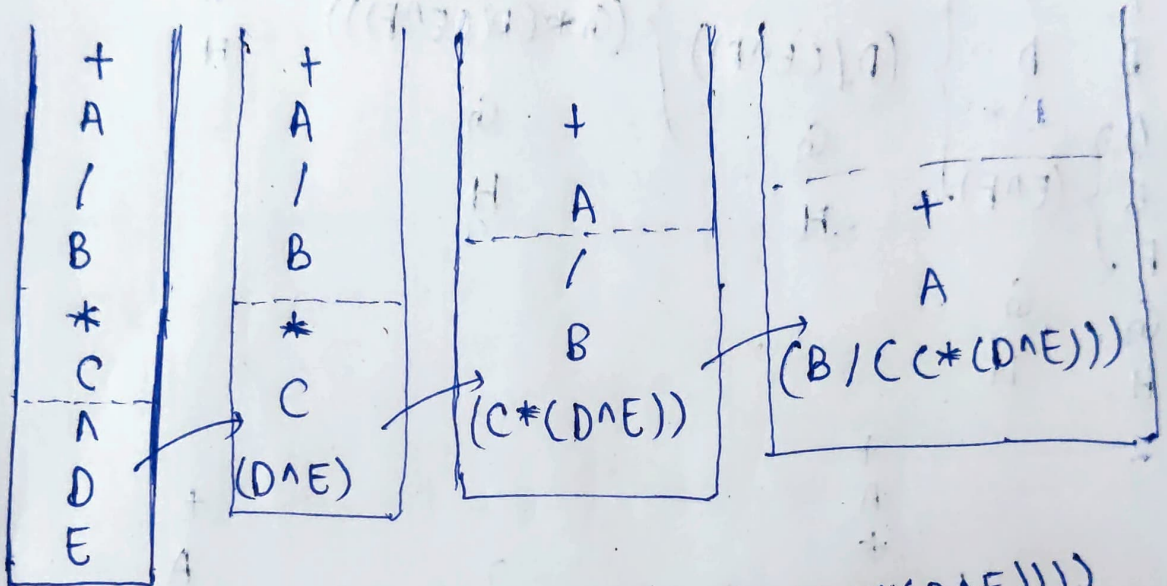 +
A
/
B
*
C
^
D
E
+
A
/
B
*
C
(D^E)
+
A
/
B
(C*(D^E))
+
A
(B/(C*(D^E)))